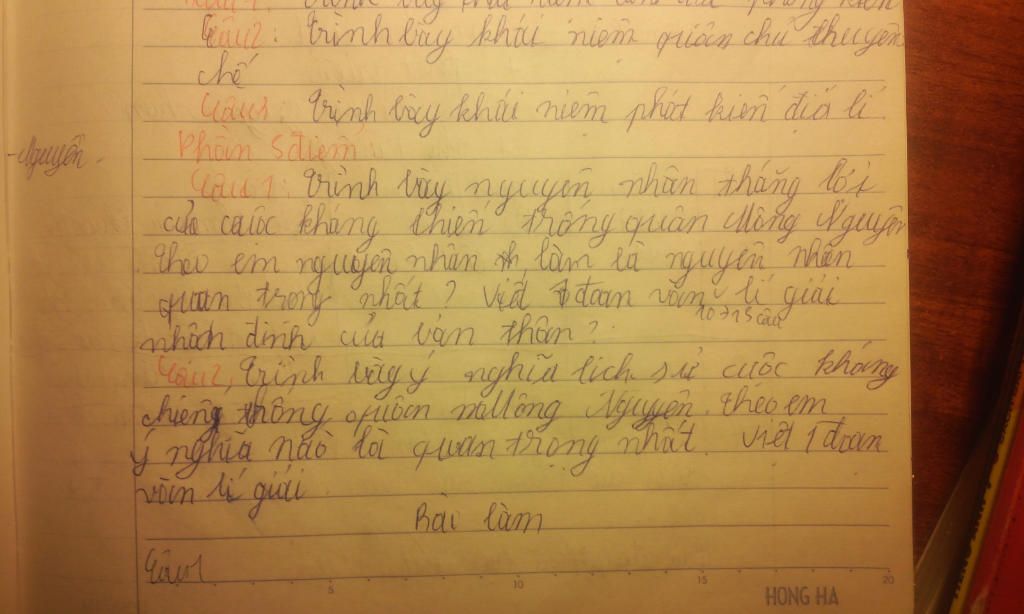 Câu 1: Trình bày khái niệm lãnh địa phong kiến
Câu 2: Trình bày khái niệm quân chủ chuyên
chế
Câu 3: Trình bày khái niệm phát kiến địa lí
Phần 5 điểm
- Nguyên -
Câu 1: Trình bày nguyên nhân thắng lợi
của cuộc kháng chiến trống quân Mông Nguyên
theo em nguyên nhân làm là nguyên nhân
quan trọng nhất? Viết 1 đoạn văn lí giải
10 → 15 câu
nhận định của bản thân?
Câu 2, Trình bày ý nghĩa lịch sử cuộc kháng
chiến thống quân Mông Nguyên. theo em
ý nghĩa nào là quan trọng nhất. viết 1 đoạn
văn lí giải
Bài làm
Câu 1
5 10 15 20
HONG HA